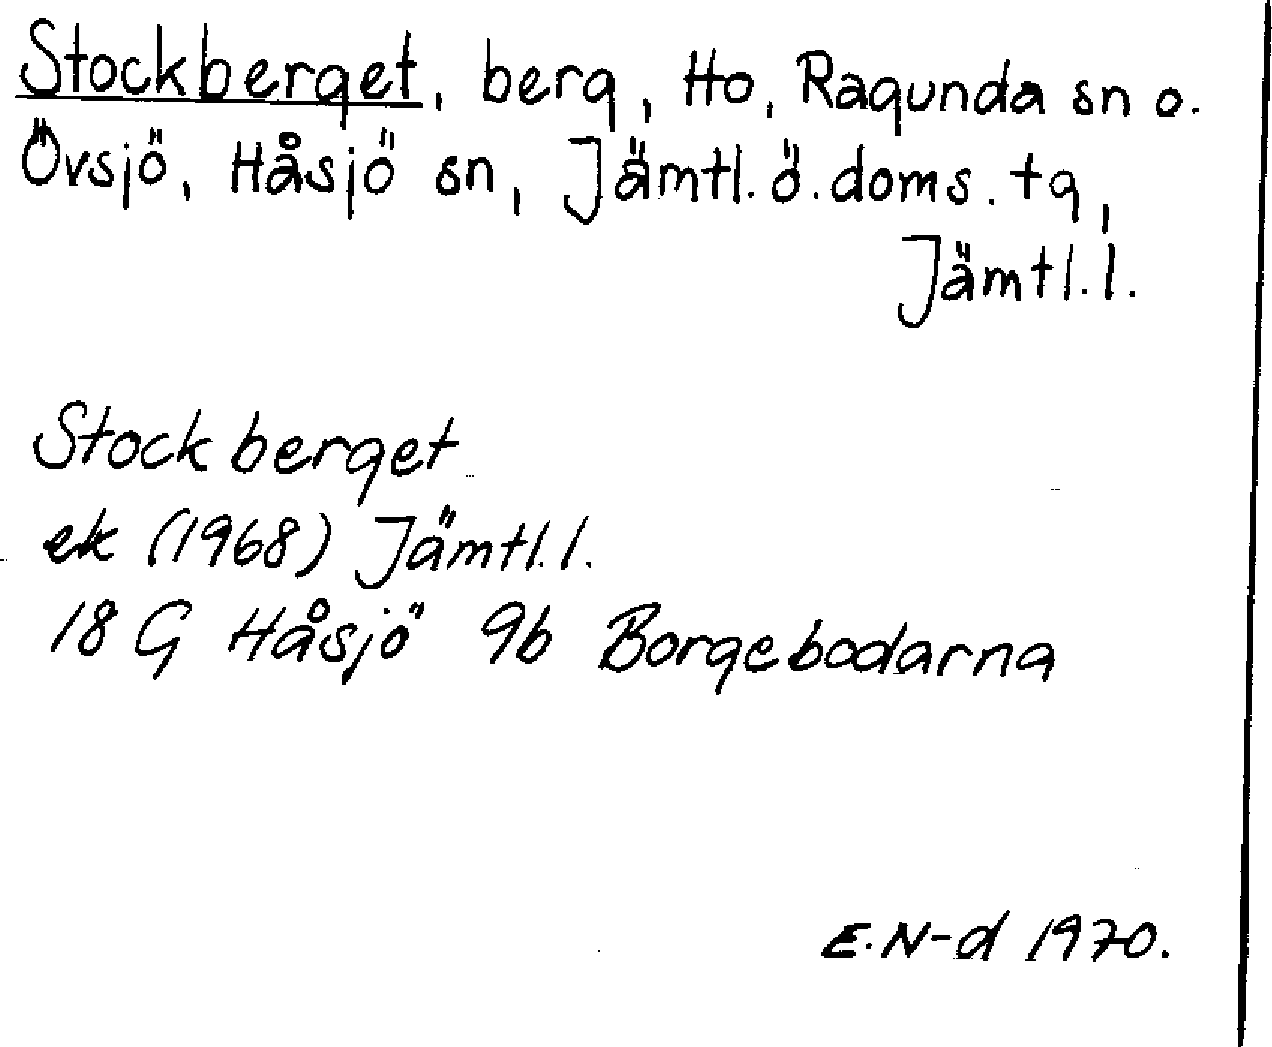 Stockberget, berg, Ho, Ragunda sn o.
Övsjö, Håsjö sn, Jämtl. ö. doms. tg,
Jämtl. l.
Stockberget
ek (1968) Jämtl. l.
18 G Håsjö 9b Borgebodarna
E. N-d 1970.